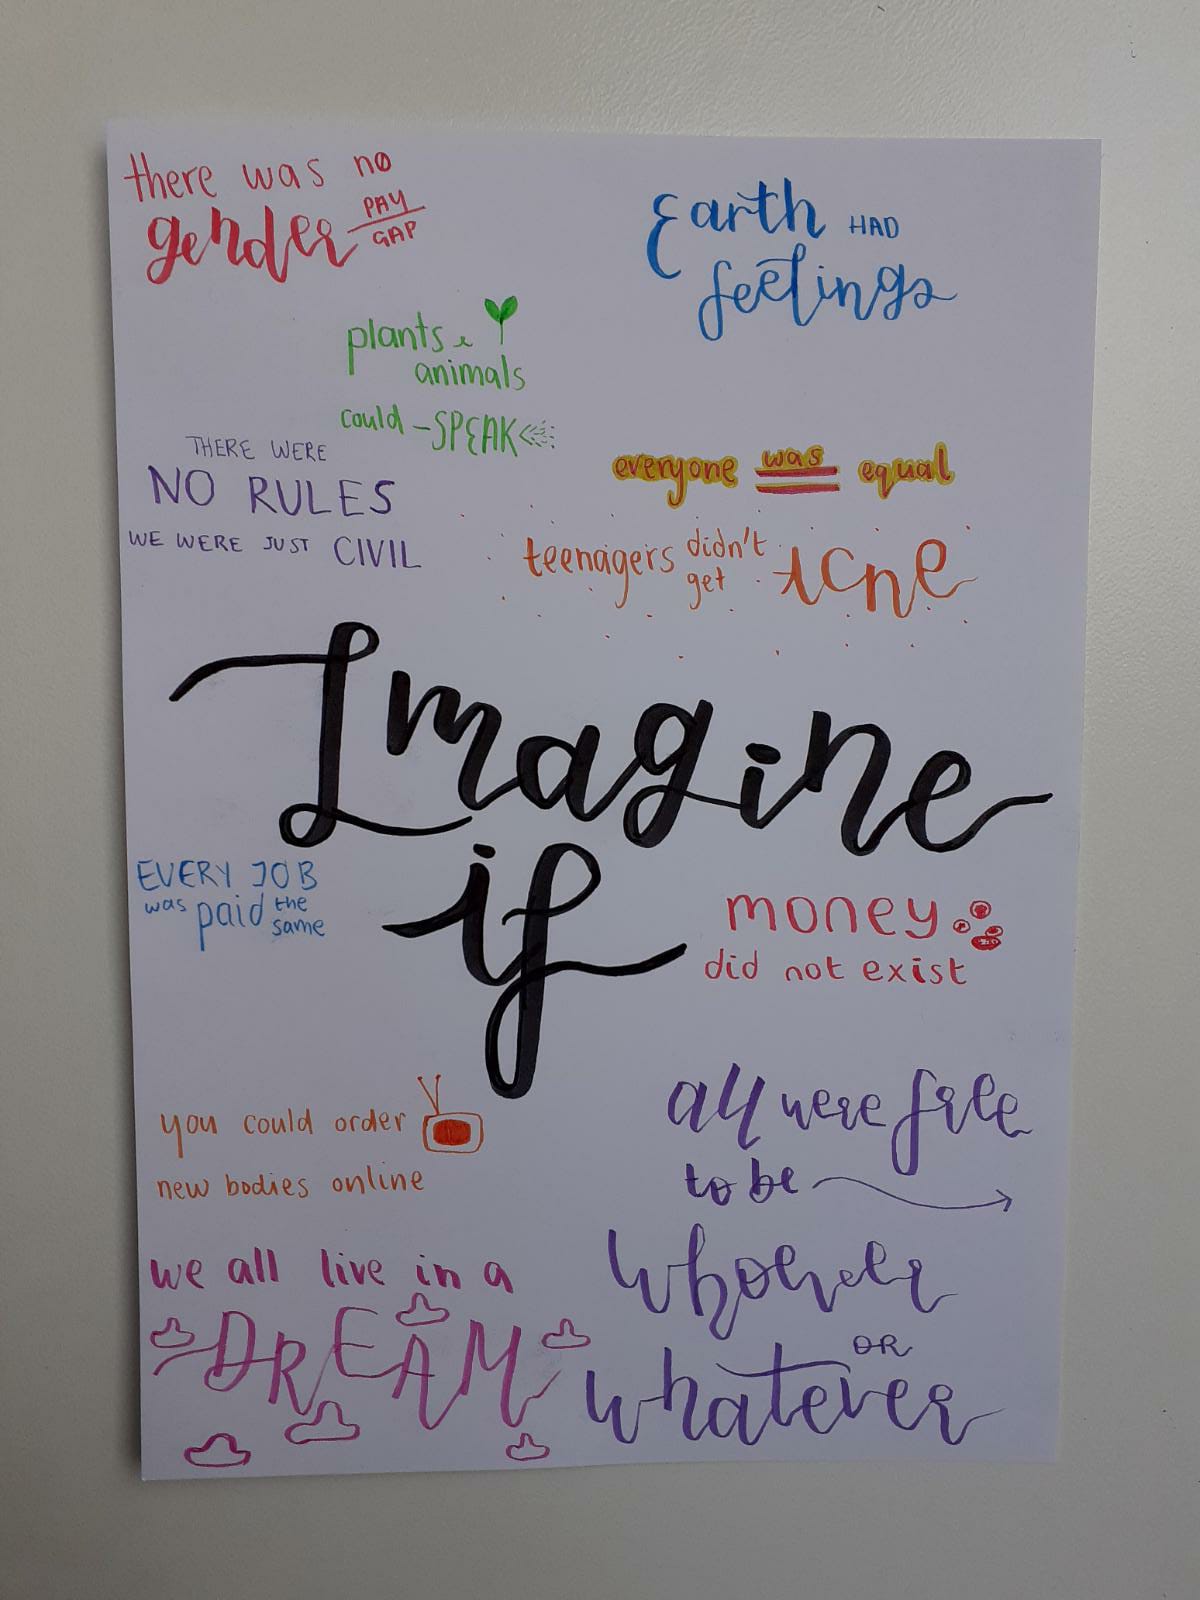 there was no
gender PAY
GAP
Earth HAD
feelings
plants &
animals
could - SPEAK
THERE WERE
NO RULES
WE WERE JUST CIVIL
everyone was equal
teenagers didn't
get acne
Imagine
if
EVERY JOB
was paid the
same
money
did not exist
you could order
new bodies online
all were free
to be
whoever
OR
whatever
we all live in a
DREAM